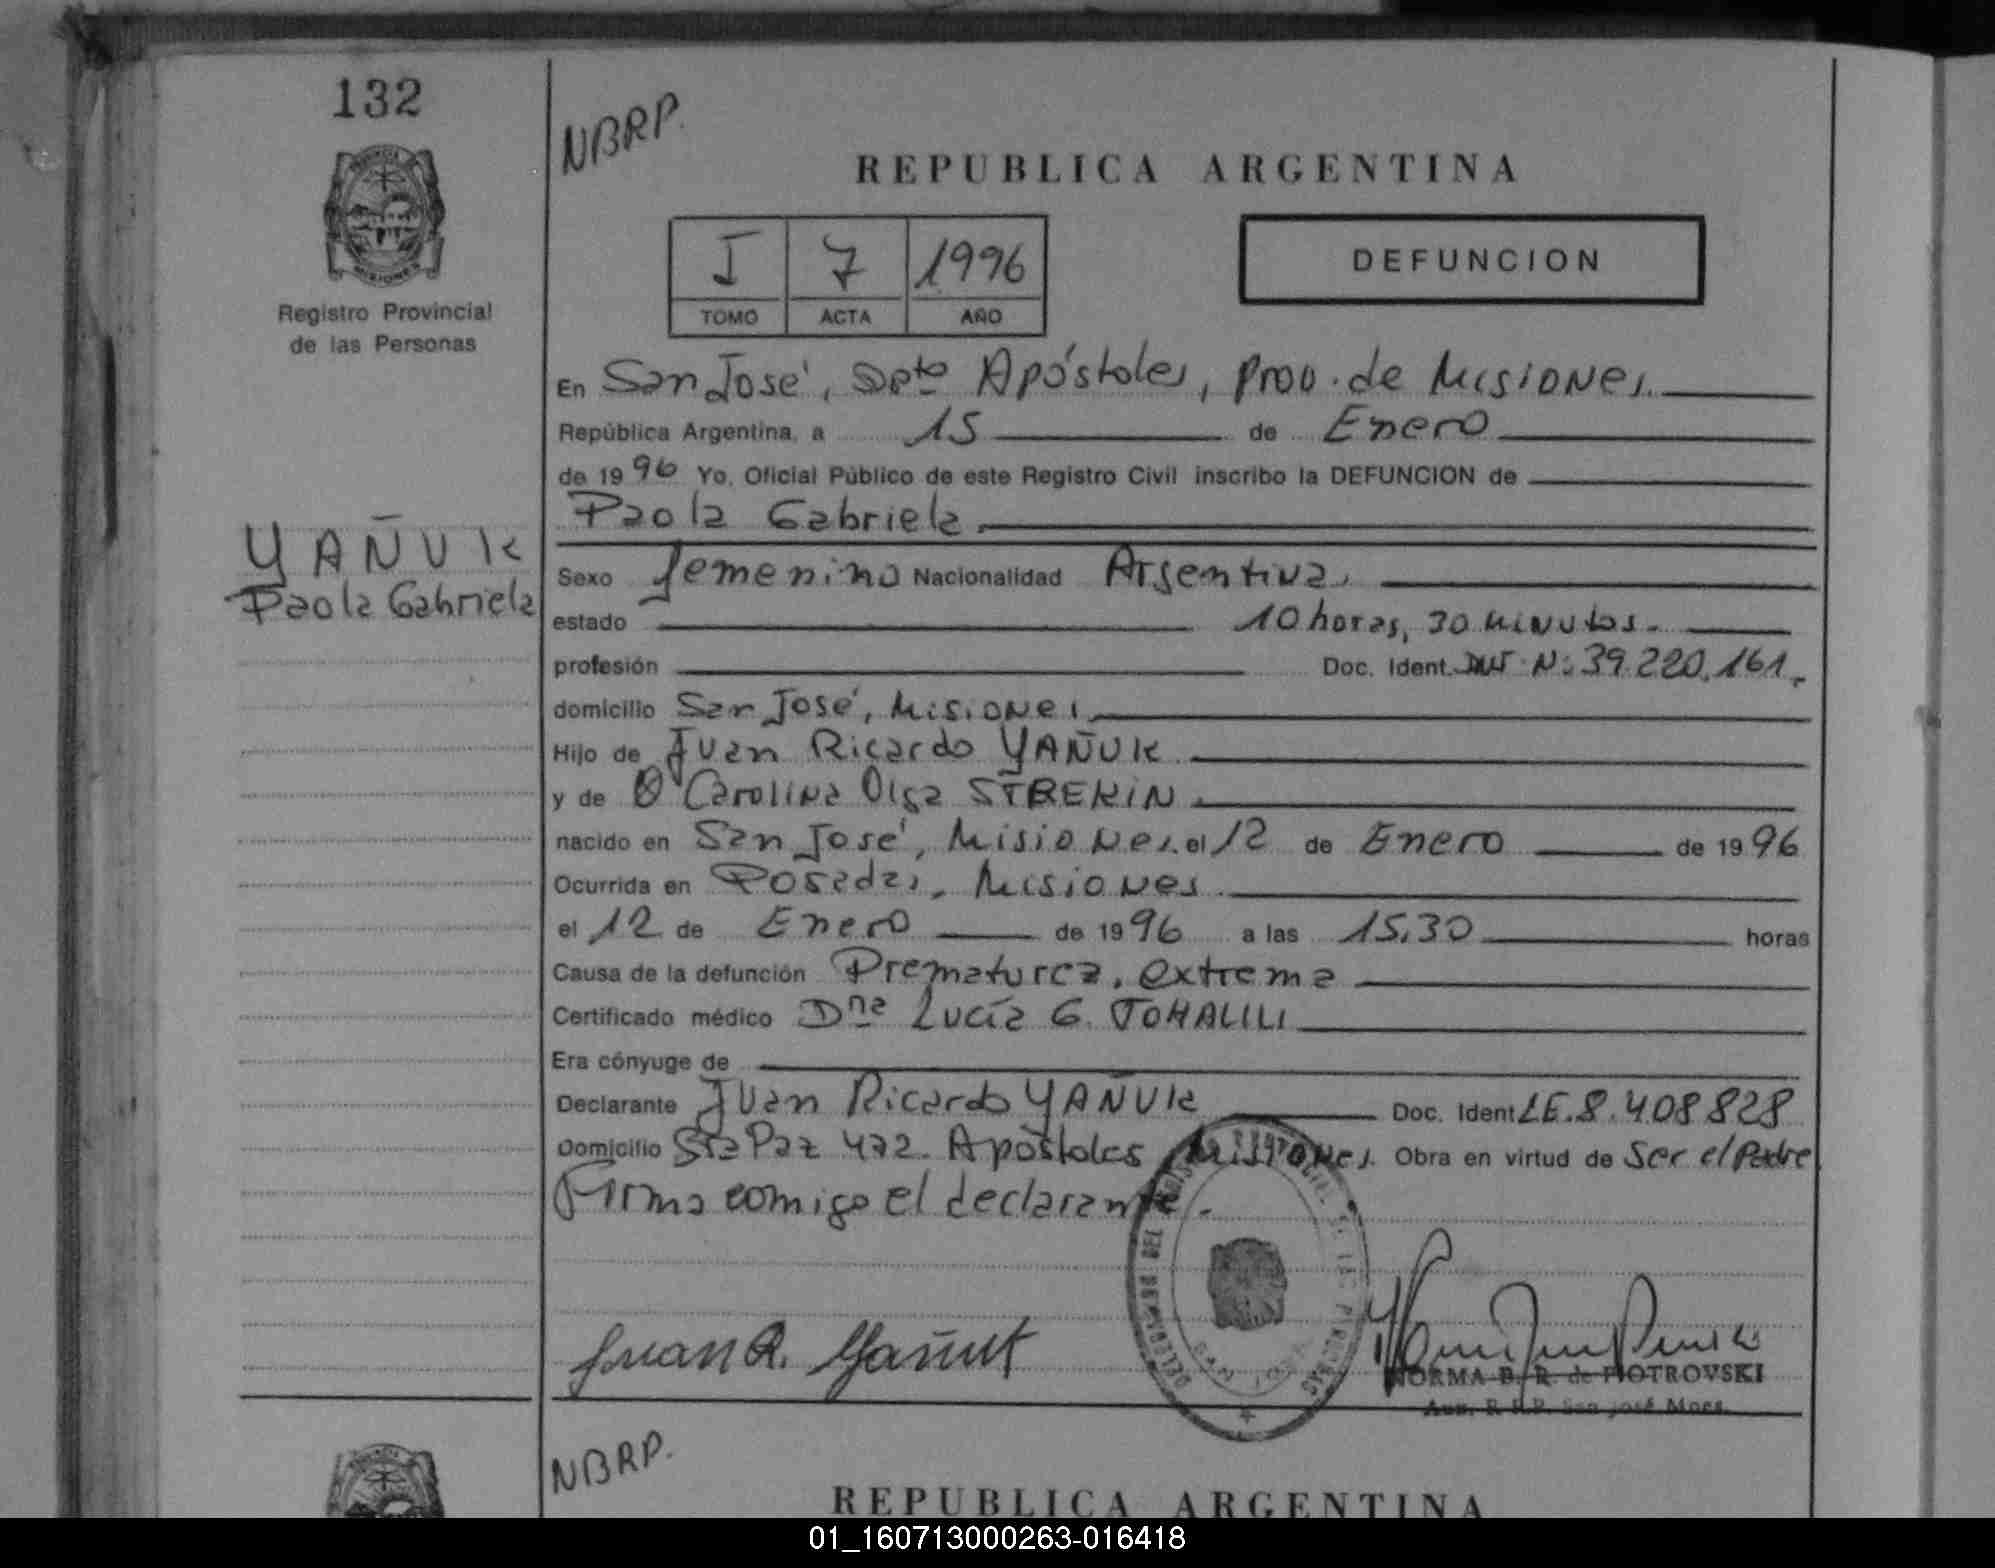 132
NBRP.
REPUBLICA ARGENTINA
PROVINCIA
MISIONES
Registro Provincial
de las Personas
I 7 1996
TOMO ACTA AÑO
DEFUNCION
En San José, Dpto Apóstoles, Prov. de Misiones.
República Argentina, a 15 de Enero
de 1996 Yo, Oficial Público de este Registro Civil inscribo la DEFUNCION de
Paola Gabriela
YAÑUK
Paola Gabriela
Sexo femenino Nacionalidad Argentina,
estado 10 horas, 30 minutos.
profesión Doc. Ident. DNI N: 39.220.161.
domicilio San José, Misiones
Hijo de Juan Ricardo YAÑUK
y de Carolina Olga STREKIN
nacido en San José, Misiones. el 12 de Enero de 1996
Ocurrida en Posadas, Misiones
el 12 de Enero de 1996 a las 15.30 horas
Causa de la defunción Prematurez, extrema
Certificado médico Dña Lucía G.
Era cónyuge de
Declarante Juan Ricardo YAÑUK Doc. Ident LE. 8.408828
Domicilio Sta Paz 472. Apóstoles Misiones. Obra en virtud de Ser el Padre
Firma comigo el declarante.
Juan R. Yañuk
NORMA B. R. de PIOTROVSKI
Aux. R.P.P. San José Mnes.
NBRP.
REPUBLICA ARGENTINA
01_160713000263-016418